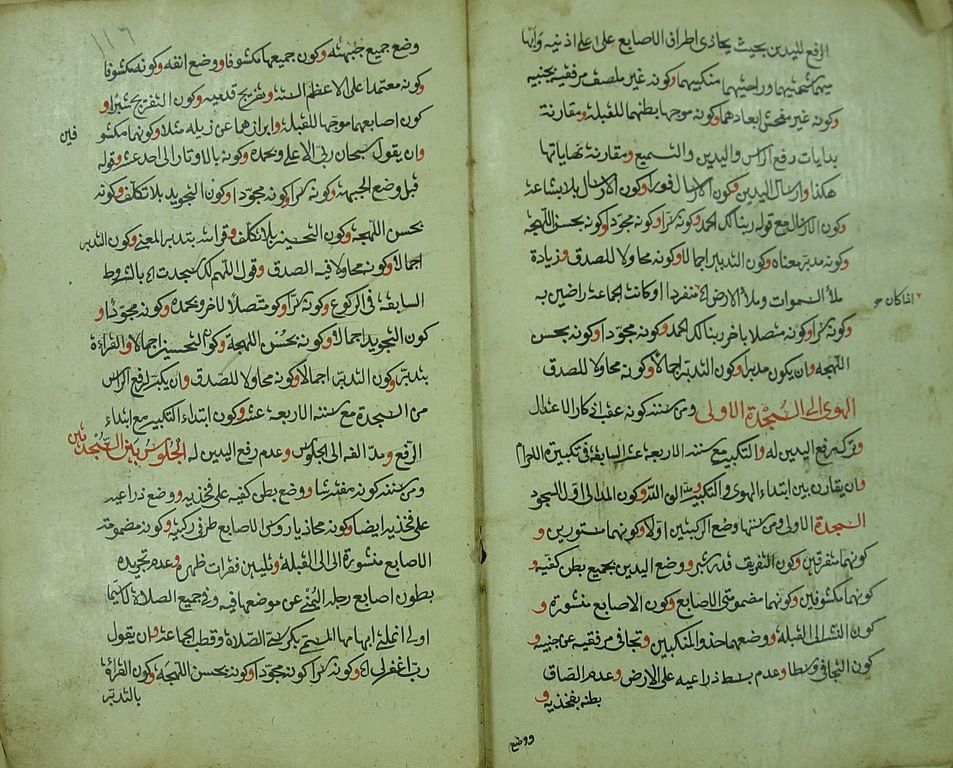 الرفع لليدين بحيث يحاذى اطراف الاصابع على اعلى اذنيه وابها
ميهما شحمتيهما وراحتيهما منكبيهما وكونه غير ملصف مرفقيه بجنبيه
وكونه غير مفحش ابعادهما وكونه موجها بطنهما للقبلة ومقارنة
بدايات رفع الراس واليدين والتسميع ومقارنة نهاياتها
هكذا وارسال اليدين وكون الارسال فورا وكون الارسال بلا بشاعة
وكون الارسال مع قوله ربنا لك الحمد وكونه سرا وكونه مجودا وكونه بحسن اللهجة
وكونه مدبر معناه وكون التدبير اجمالا وكونه محاولا للصدق وزيادة
ملأ السموات وملأ الارض الخ منفردا او كانت الجماعة راضين به
اذا كان
وكونه سرا وكونه متصلا باخر ربنا لك الحمد وكونه مجودا وكونه بحسن
اللهجة وان يكون مدبرا وكون التدبر اجمالا وكونه محاولا للصدق
الهوى الى السجدة الاولى ومن سننه كونه عقب اذكار الاعتدال
وترك رفع اليدين له والتكبير مع سننه الاربعة عشر السابقة فى تكبيرة التحرم
وان يقارن بين ابتداء الهوى والتكبير الى الله وكون المد الى اول السجود
السجدة الاولى ومن سننها وضع الركبتين اولا وكونهما مستورين و
كونهما متفرقين وكون التفريق قدر شبر ووضع اليدين بجميع بطن كفيه و
كونهما مكشوفين وكونهما مضمومتى الاصابع وكون الاصابع منشورة و
كون النشر الى القبلة ووضعهما حذو المنكبين وتجافى مرفقيه عن جنبيه و
كون التجافى وسطا وعدم بسط ذراعيه على الارض وعدم الصاق
بطنه بفخذيه و
ووضع
١١٦
وضع جميع جبهته وكون جميعها مكشوفا ووضع انفه وكونه مكشوفا
وكونه معتمدا على الاعظم الستة وتفريج قدميه وكون التفريج شبرا و
كون اصابعهما موجها للقبلة وابرازهما عن ذيله مثلا وكونهما مكشو
فين
وان يقول سبحان ربى الاعلى وبحمده وكونه بالاوتار الى احد عشر وقوله
قبل وضع الجبهة وكونه سرا وكونه مجودا وكون التجويد بلا تكلف وكونه
بحسن اللهجة وكون التحسين بلا تكلف وقراءته بتدبر المعنى وكون التدبر
اجمالا وكونه محاولا فيه الصدق وقول اللهم لك سجدت الخ بالشروط
السابقة فى الركوع وكونه سرا وكونه متصلا لاخر وبحمده وكونه مجودا و
كون التجويد اجمالا وكونه بحسن اللهجة وكون التحسين اجمالا والقراءة
بتدبر وكون التدبر اجمالا وكونه محاولا للصدق وان يكبر لرفع الراس
من السجدة مع سننه الاربعة عشر وكون ابتداء التكبير مع ابتداء
الرفع ومد الفه الى الجلوس وعدم رفع اليدين له الجلوس بين السجدتين
ومن سننه كونه مفترشا ووضع بطن كفيه على فخذيه ووضع ذراعيه
على فخذيه ايضا وكونه محاذيا رؤس الاصابع طرفى ركبتيه وكونه مضمومة
الاصابع منشورة الى القبلة وتليين فقرات ظهره وعدم تحريكه
بطون اصابع رجله اليمنى عن موضعها فيه وفى جميع الصلاة لا سيما
اولى انملة ابهامها المسمى بكرسى الصلاة وقطب الجماعة وان يقول
رب اغفر لى الخ وكونه سرا وكونه مجودا وكونه بحسن اللهجة وكون القراءة
بالتدبر